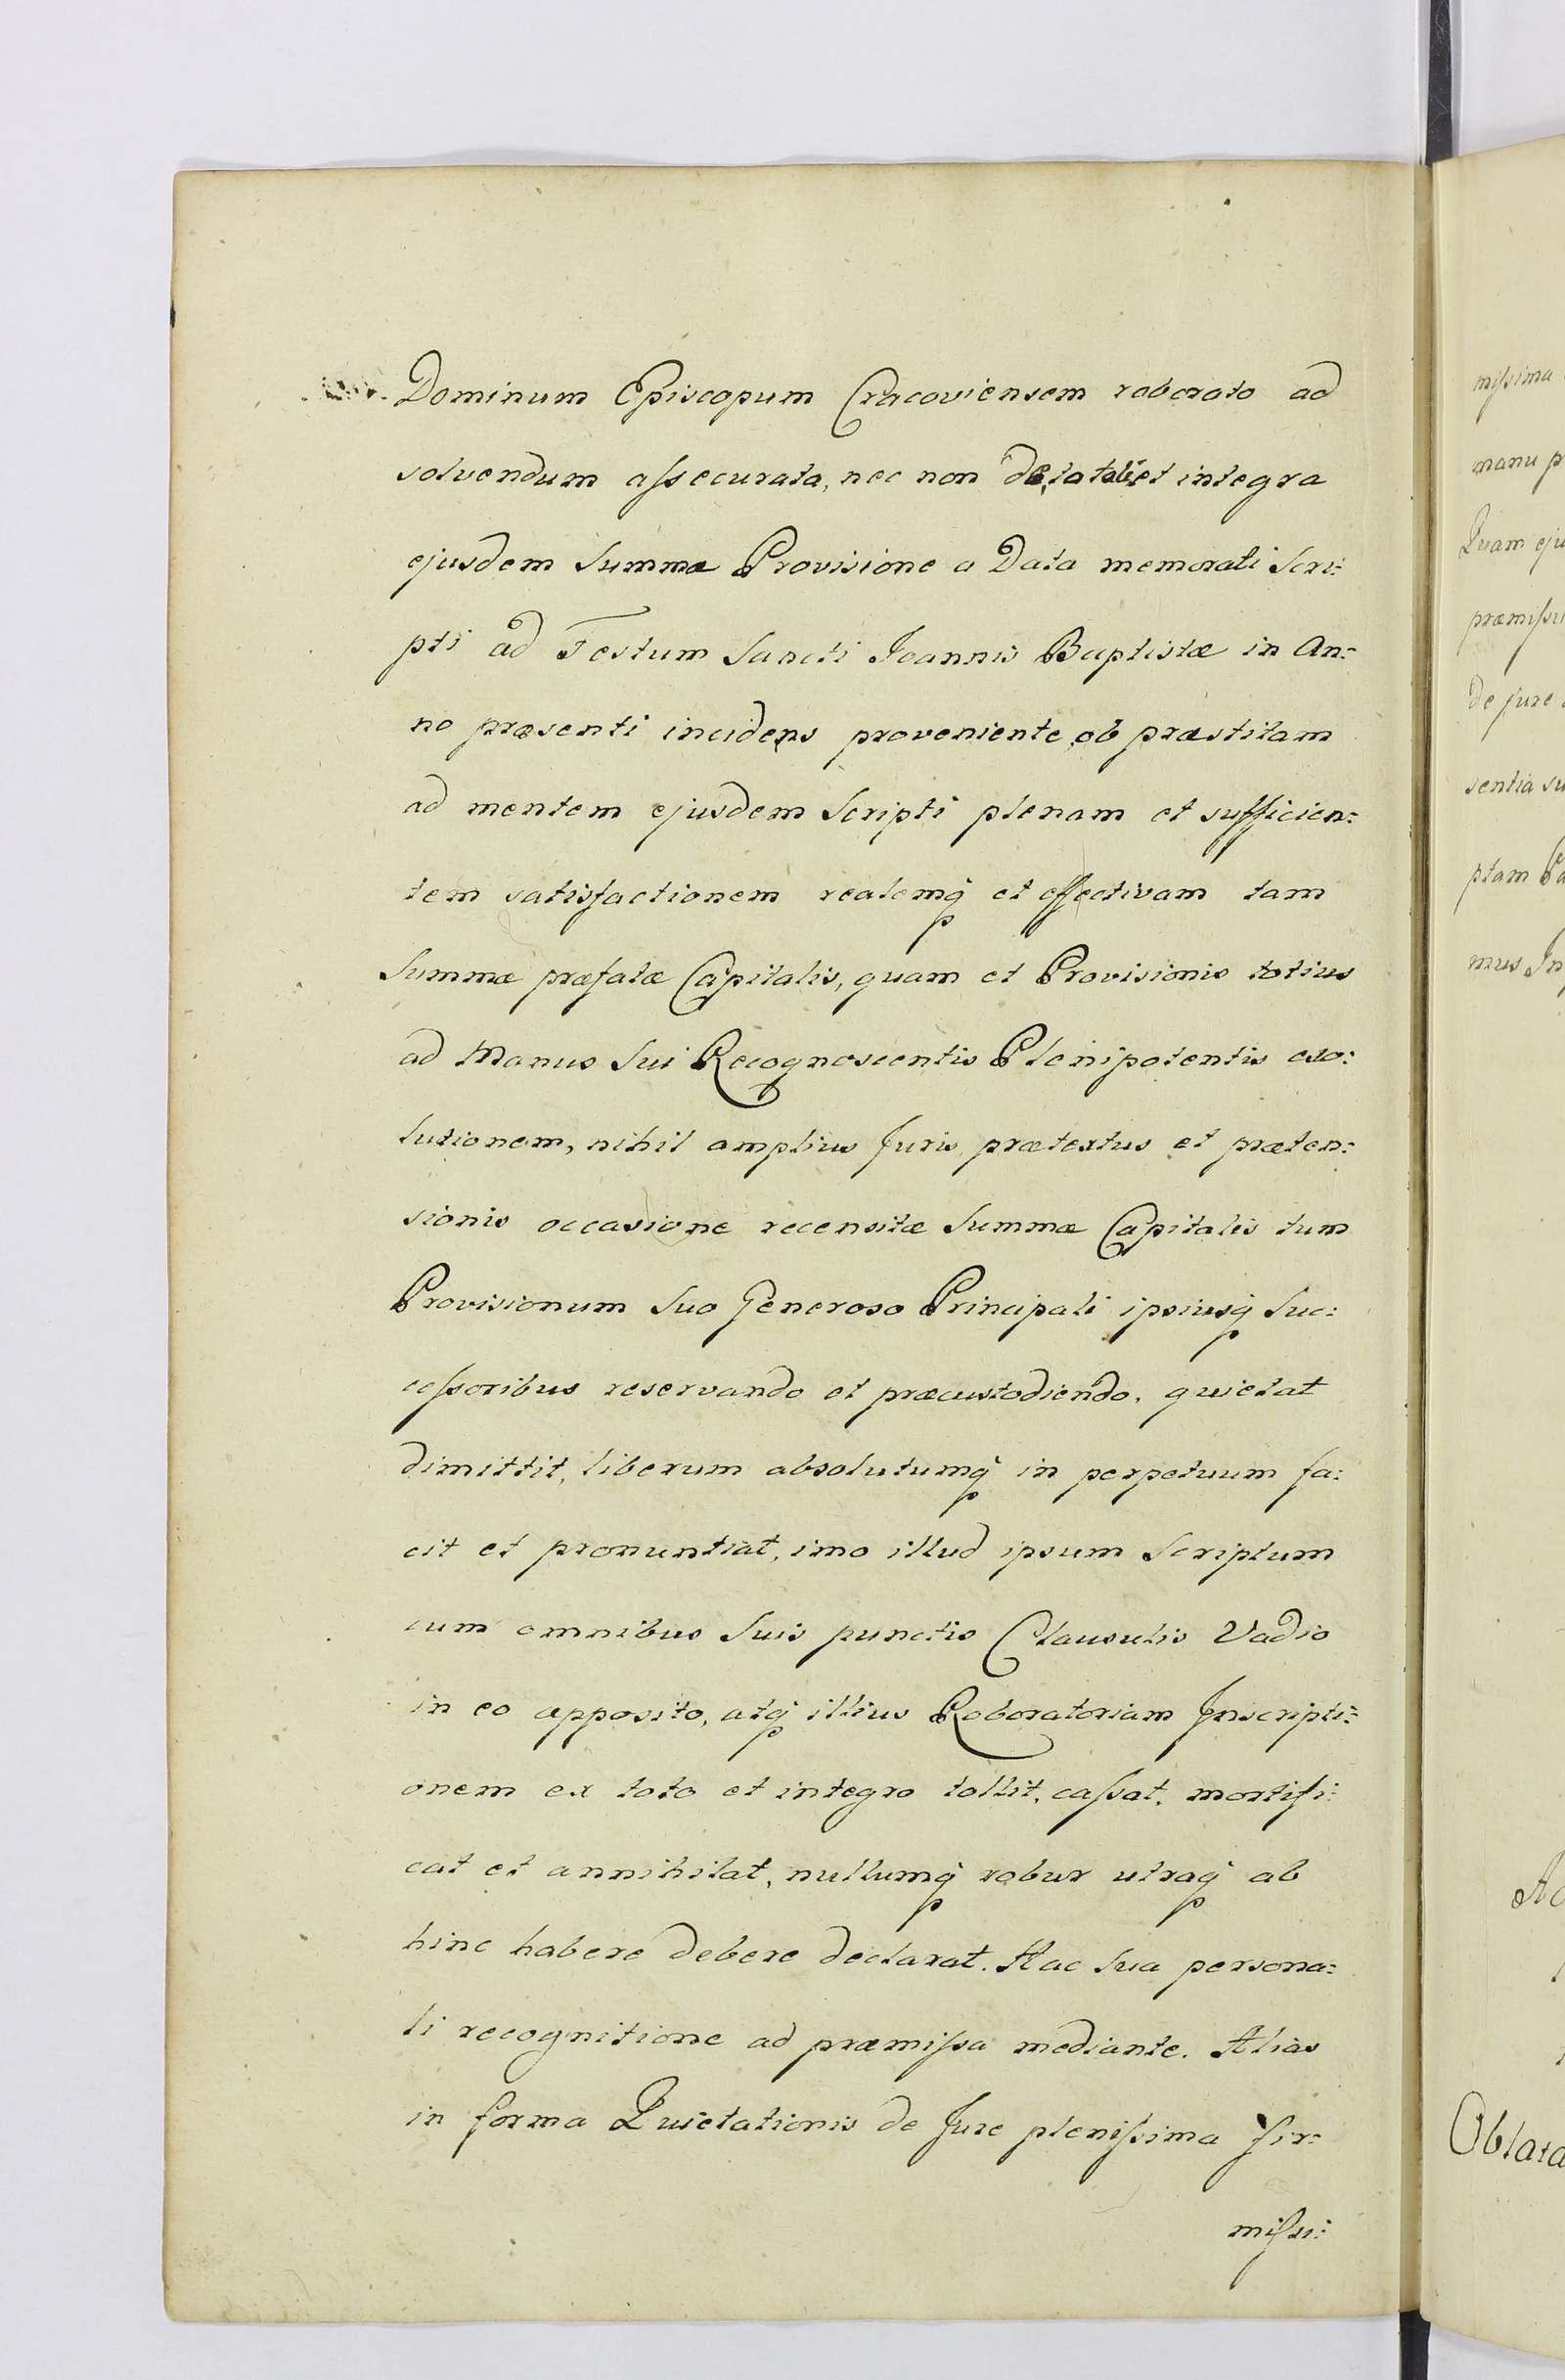 Dominum Episcopum Cracoviensem roborato ad
solvendum aſsecurata, nec non de totali et integra
ejusdem Summæ Provisione a Data memorati Scri:
pti ad Festum Sancti Joannis Baptistæ in An:
no præsenti incidens proveniente ob præstitam
ad mentem ejusdem Scripti plenam et sufficien:
tem satisfactionem realemq̃ et effectivam tam
Summæ præfatæ Capitalis, quam et Provisionis totius
ad Manus Sui Recognoscentis Plenipotentis exo:
lutionem, nihil amplius Juris prætextus et præten:
sionis occasione recensitæ Summæ Capitalis tum
Provisionum Suo Generoso Principali ipsiusq̃ Suc:
ceſsoribus reservando et præcustodiendo, quietat
dimittit, liberum absolutumq̃ in perpetuum fa:
cit et pronuntiat, imo illud ipsum Scriptum
cum omnibus Suis punctis Clausulis Vadio
in eo apposito, atq̃ illius Roboratoriam Inscripti:
onem ex toto et integro tollit, caſsat, mortifi:
cat et annihilat, nullumq̃ robur utraq̃ ab
hinc habere debere declarat. Hac Sua persona:
li recognitione ad præmiſsa mediante. Alias
in forma Quietationis de Jure pleniſsima fir:
miſsi:
miſsima
manu p
Quam eju
præmiſsu
de jure
sentia su
ptam Pa
mus In
Oblata